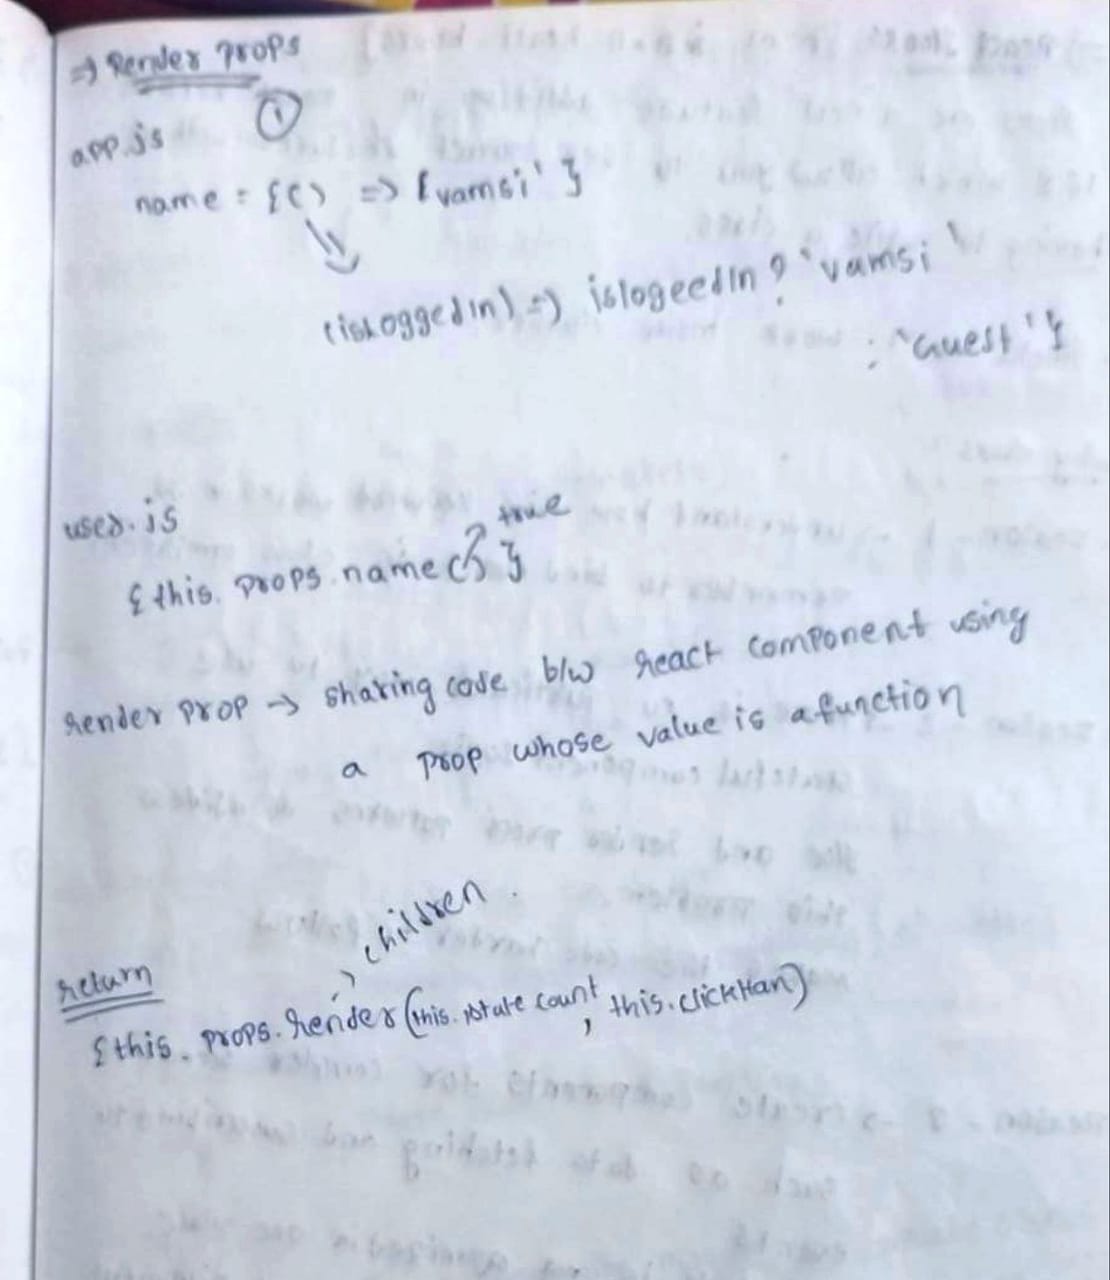 => Render props
①
app.js
name = {() => {vamsi' }
(isLoggedIn) => islogeedIn ? 'vamsi'
: 'Guest' }
user.js
true
{ this. props. name() }
render prop → sharing code b/w react component using
a prop whose value is a function
children
return
{ this. props. render (this. state count, this. clickHan)